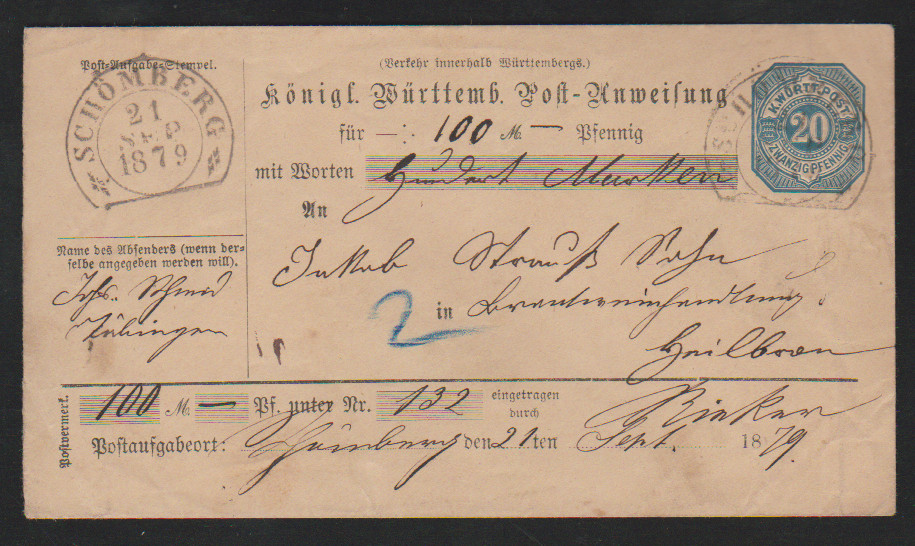 Post-Aufgabe-Stempel.
SCHÖMBERG
21
SEP
1879
(Verkehr innerhalb Württembergs.)
Königl. Württemb. Post-Anweisung
für —: 100 M. — Pfennig
mit Worten Hundert Marken
An
K.WÜRTT.POST
20
ZWANZIG PFENNIG
Name des Absenders (wenn der-
selbe angegeben werden will).
Johs. Schmid
Tübingen
Jakob Strauß Sohn
2
in Brantweinhandlung
Heilbron
Postvermerk.
100 M. — Pf. unter Nr. 132 eingetragen durch Rieker
Postaufgabeort: Schömberg den 21ten Sept. 1879.